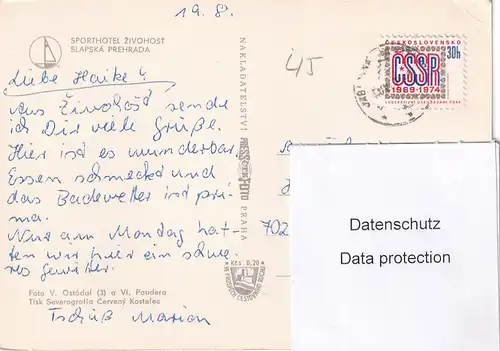 19. 8.
SPORTHOTEL ŽIVOHOST
SLAPSKÁ PŘEHRADA
Liebe Haike!
Aus Živohošt sende
ich Dir viele Grüße.
Hier ist es wunderbar.
Essen schmeckt und
das Badewetter ist pri-
ma.
Nur am Montag hat-
ten wir hier ein schwe-
res Gewitter.
Foto V. Ostádal (3) a Vl. Poudera
Tisk Severografia Červený Kostelec
Tschüß Marion
NAKLADATELSTVÍ PRESSFOTO PRAHA
Kčs 0,20
45
ČESKOSLOVENSKO
30h
ČSSR
1969-1974
702
Datenschutz
Data protection